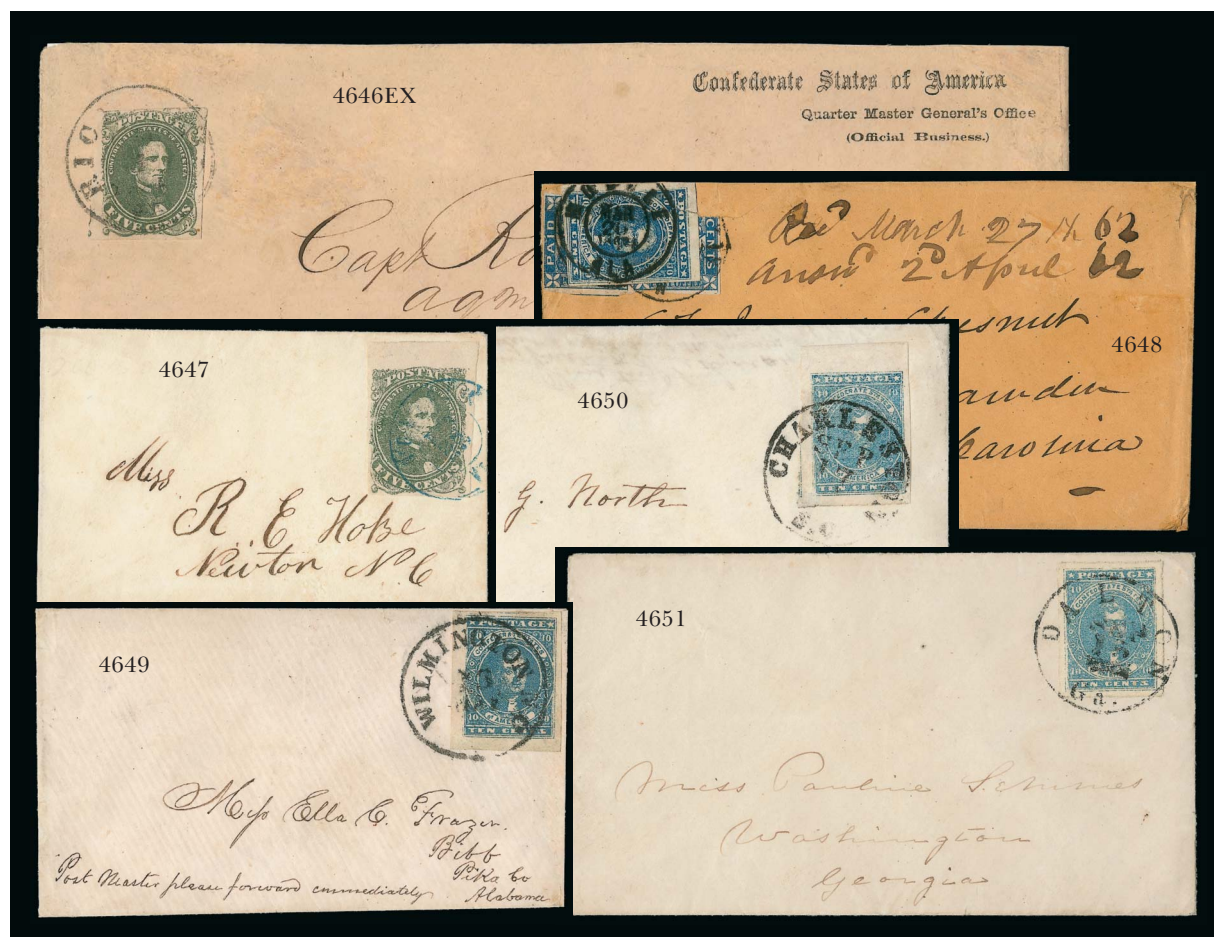 4646EX
Confederate States of America
Quarter Master General's Office
(Official Business.)
RIC
POSTAGE
CONFEDERATE STATES OF AMERICA
FIVE CENTS
Capt
MOBILE
ALA
PAID
POSTAGE
CENTS
Recd March 27th 62
Ansd 2d April 62
Chesnut
4648
amden
Carolina
4647
POSTAGE
FIVE CENTS
Miss
R. E Hoke
Newton N. C
4650
POSTAGE
10 10
CHARLESTON
SEP
17
TEN CENTS
G. North
4649
POSTAGE
10 10
WILMINGTON
10
TEN CENTS
Miss Ella C. Frazer.
Bibb
Pike Co
Alabama
Post Master please forward immediately
4651
POSTAGE
DALTON
Ga.
TEN CENTS
Miss Pauline Schines
Washington
Georgia